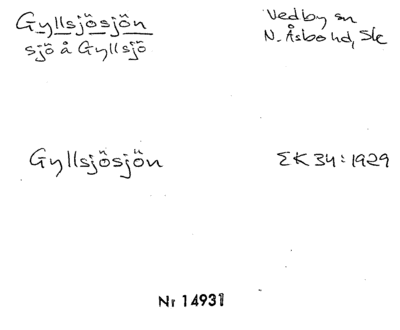 Gyllsjösjön
sjö å Gyllsjö
Vedby sn
N. Åsbo hd, Sk
Gyllsjösjön
ΣK 34:1929
Nr 14931